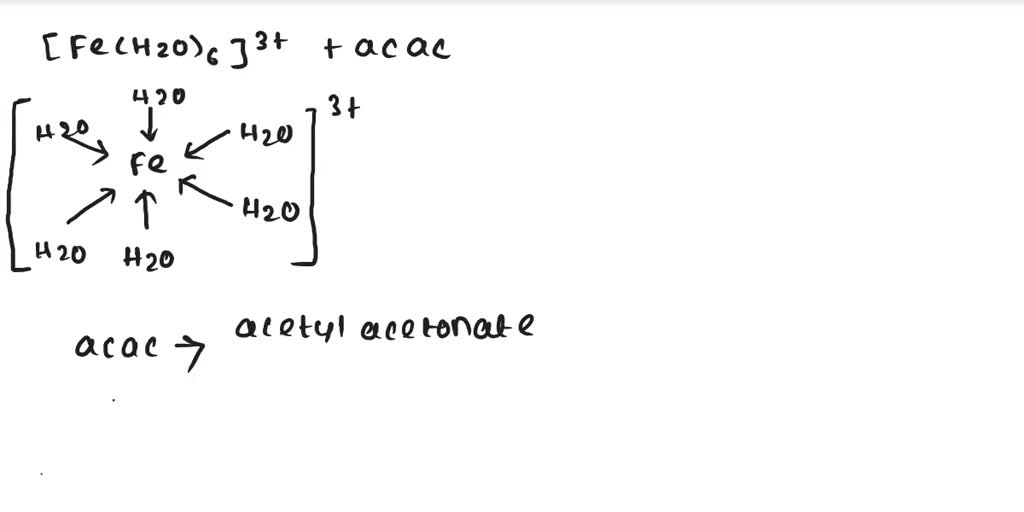 [Fe(H2O)6]3+ + acac
H2O 3+
H2O H2O
Fe
H2O
H2O H2O
acac → acetyl acetonate